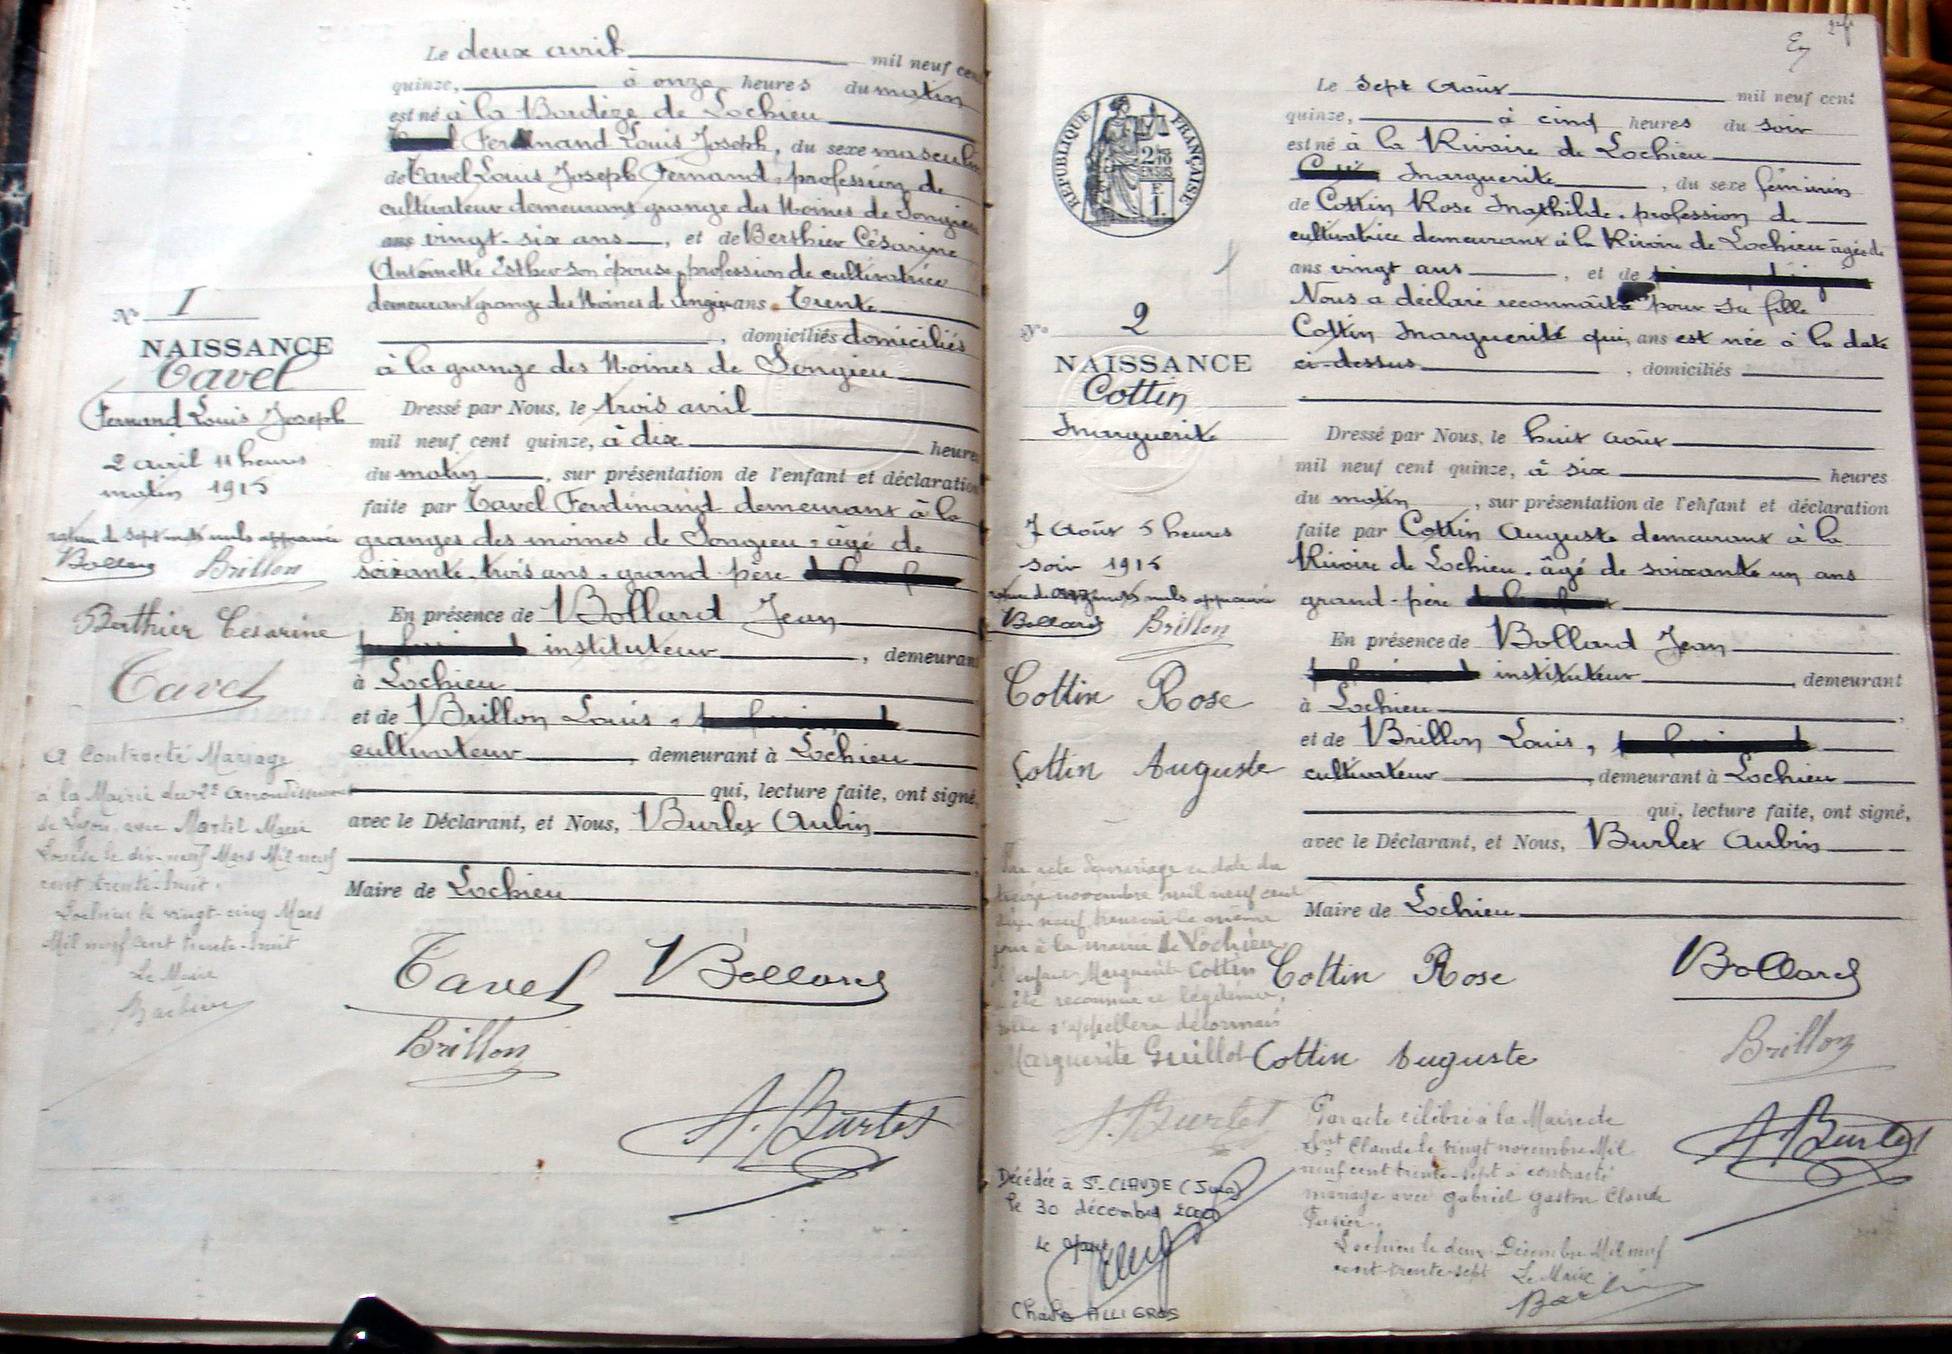 Le deux avril mil neuf cen
quinze, à onze heures du matin
est né à la Bardèze de Lochieu
Fernand Louis Joseph, du sexe masculin
de Cavel Louis Joseph Fernand, profession de
cultivateur demeurant grange des Moines de Songieu
ans vingt-six ans, et de Berthier Césarine
Antoinette Esther son épouse, profession de cultivatrice
demeurant grange des Moines de Songieu ans Trente
, domiciliés domiciliés
à la grange des Moines de Songieu
Dressé par Nous, le trois avril
mil neuf cent quinze, à dix heures
du matin, sur présentation de l'enfant et déclaration
faite par Cavel Ferdinand demeurant à la
granges des moines de Songieu, âgé de
soixante-trois ans, grand-père
En présence de Bollard Jean
instituteur, demeurant
à Lochieu
et de Brillon Louis,
cultivateur, demeurant à Lochieu
qui, lecture faite, ont signé,
avec le Déclarant, et Nous, Burlet Aubin
Maire de Lochieu
Cavel Bollard
Brillon
A. Burlet
N° 1
NAISSANCE
Cavel
Fernand Louis Joseph
2 avril 11 heures
matin 1915
rature de sept mots nuls approuvée
Bollard Brillon
Berthier Césarine
Cavel
A Contracté Mariage
à la Mairie du 2e arrondissement
de Lyon, avec Martel Marie
Louise le dix-neuf Mars Mil neuf
cent trente-huit.
Lochieu le vingt-cinq Mars
Mil neuf cent trente-huit
Le Maire
Barbier
RÉPUBLIQUE FRANÇAISE
Le sept Août mil neuf cent
quinze, à cinq heures du soir
est né à la Rivoire de Lochieu
Marguerite, du sexe féminin
de Cottin Rose Mathilde, profession de
cultivatrice demeurant à la Rivoire de Lochieu âgée de
ans vingt ans, et de
Nous a déclaré reconnaître pour sa fille
Cottin Marguerite qui, ans est née à la date
ci-dessus, domiciliés
Dressé par Nous, le huit Août
mil neuf cent quinze, à six heures
du matin, sur présentation de l'enfant et déclaration
faite par Cottin Auguste demeurant à la
Rivoire de Lochieu, âgé de soixante un ans
grand-père
En présence de Bollard Jean
instituteur, demeurant
à Lochieu
et de Brillon Louis,
cultivateur, demeurant à Lochieu
qui, lecture faite, ont signé,
avec le Déclarant, et Nous, Burlet Aubin
Maire de Lochieu
Cottin Rose Bollard
Cottin Auguste Brillon
A. Burlet
N° 2
NAISSANCE
Cottin
Marguerite
7 Août 5 heures
soir 1915
mots nuls approuvée
Bollard Brillon
Cottin Rose
Cottin Auguste
Par acte de mariage en date du
treize novembre mil neuf cent
dix-neuf transcrit le même
jour à la mairie de Lochieu
l'enfant Marguerite Cottin
a été reconnue et légitimée,
elle s'appellera désormais
Marguerite Guillot
A. Burlet
Décédée à St-CLAUDE (Jura)
le 30 décembre 2000
Par acte célébré à la Mairie de
St Claude le vingt novembre Mil
neuf cent trente-sept a contracté
mariage avec Gabriel Gaston Claude
Lochieu le deux Décembre Mil neuf
cent-trente-sept Le Maire
Barbier